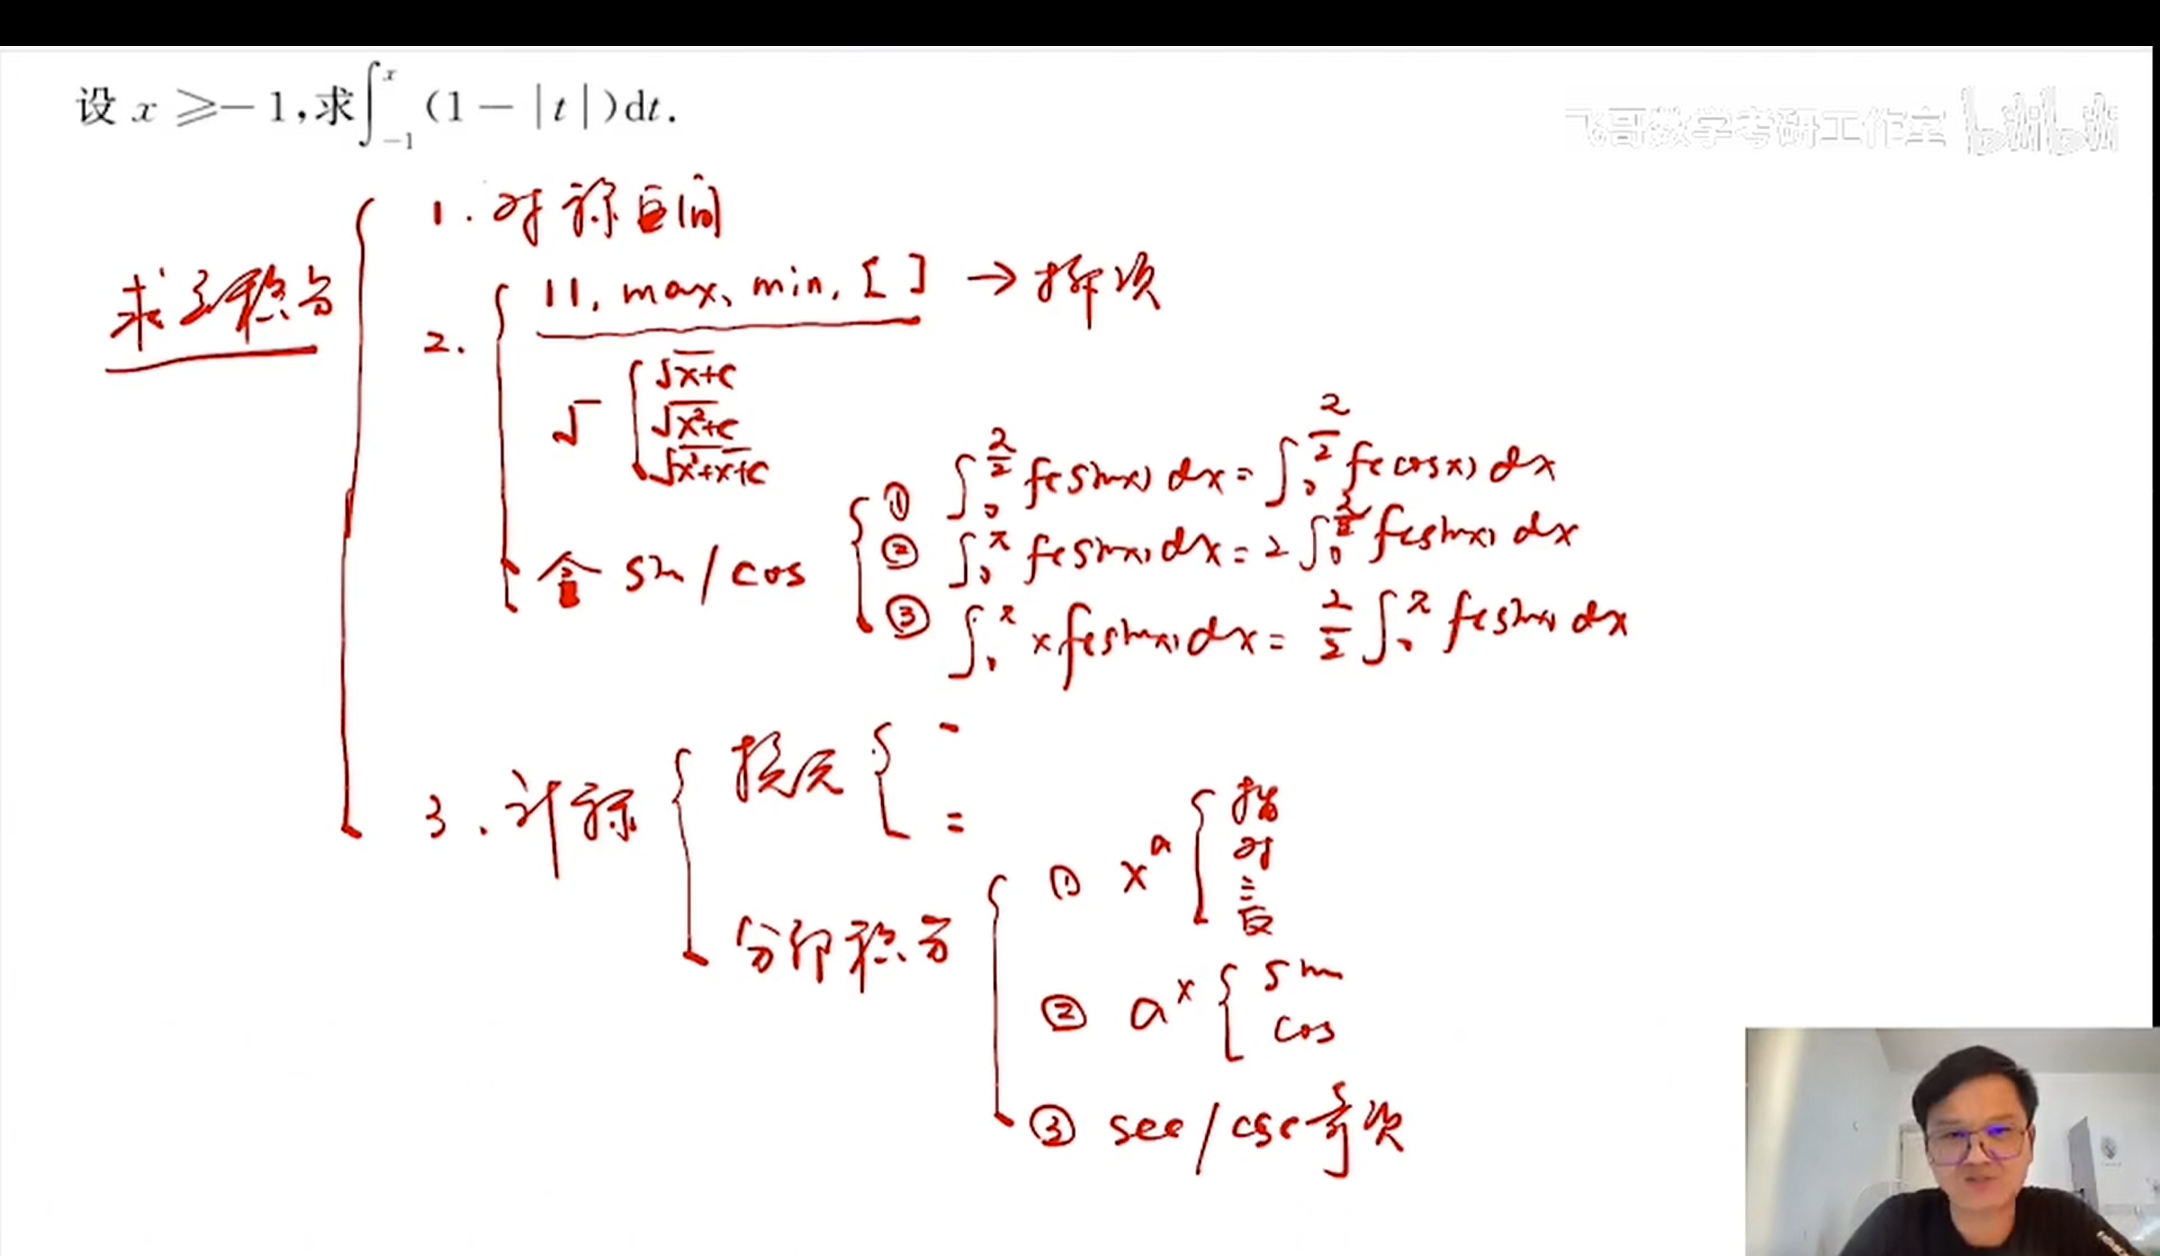 设 x ⩾ -1,求∫_{-1}^{x} (1-|t|)dt.
飞哥数学考研工作室 bilibili
求定积分
1. 对称区间
2.
| |, max, min, [ ] → 拆项
√
√x+c
√x²+c
√x²+x+c
含 sin/cos
① ∫_0^{π/2} f(sinx) dx = ∫_0^{π/2} f(cosx) dx
② ∫_0^π f(sinx) dx = 2 ∫_0^{π/2} f(sinx) dx
③ ∫_0^π x f(sinx) dx = π/2 ∫_0^π f(sinx) dx
3. 计算
换元
一
二
分部积分
① x^a
指
对
三
反
② a^x
sin
cos
③ sec/csc 奇次